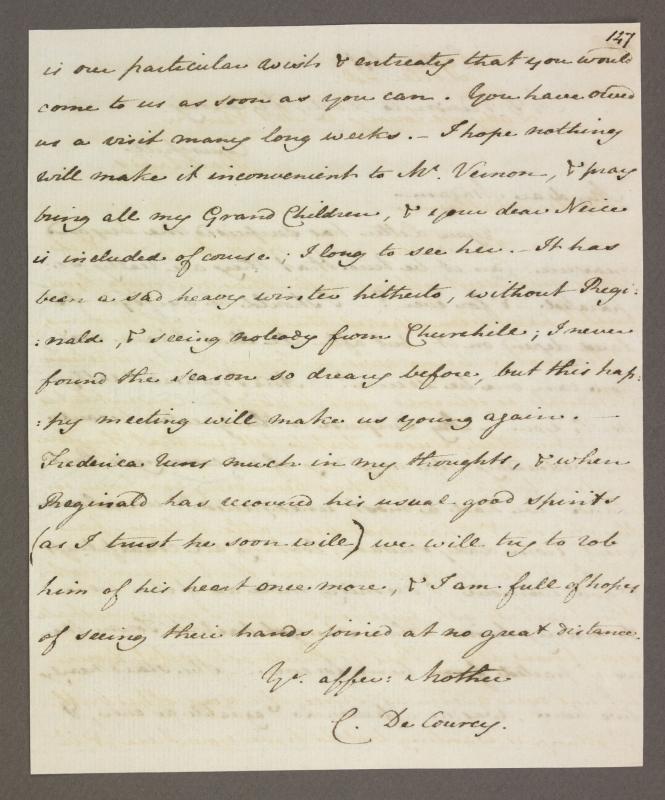 147
is our particular wish & entreaty that you would
come to us as soon as you can. You have owed
us a visit many long weeks. – I hope nothing
will make it inconvenient to Mr. Vernon, & pray
bring all my Grand Children, & your dear Neice
is included of course; I long to see her. – It has
been a sad heavy winter hitherto, without Regi:
:nald, & seeing nobody from Churchill; I never
found the season so dreary before, but this hap:
:py meeting will make us young again. —
Frederica runs much in my thoughts, & when
Reginald has recovered his usual good spirits
(as I trust he soon will) we will try to rob
him of his heart once more, & I am full of hopes
of seeing their hands joined at no great distance.
Yr. affec: Mother
C. De Courcy.